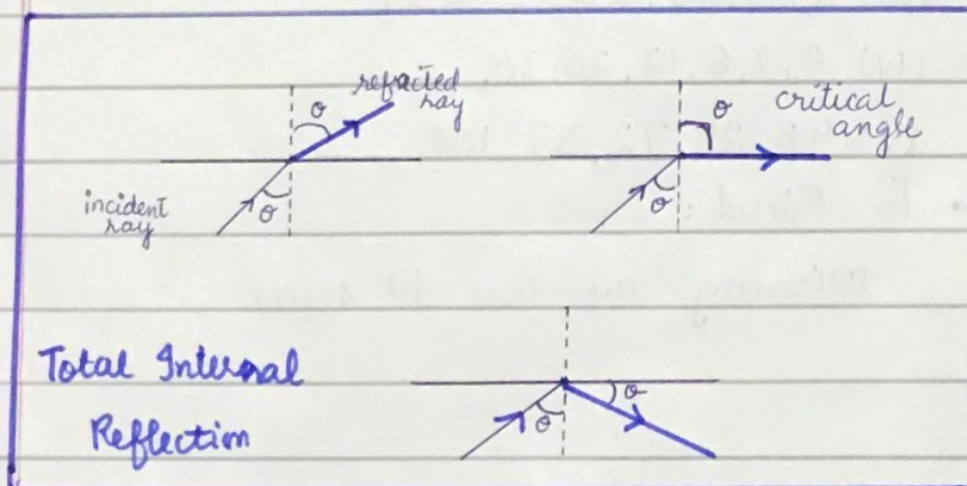 refracted
ray
θ
θ
incident
ray
critical
angle
θ
θ
Total Internal
Reflection
θ
θ